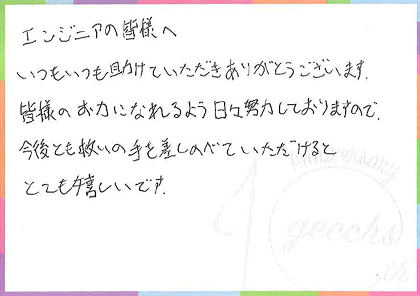 エンジニアの皆様へ
いつもいつも助けていただきありがとうございます.
皆様のお力になれるよう日々努力しておりますので.
今後とも救いの手を差しのべていただけると
とても嬉しいです.
10th
Anniversary
geechs